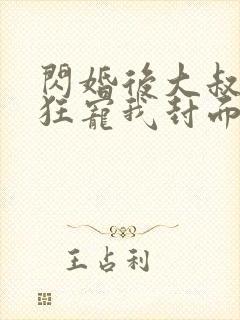 閃婚後大叔
狂寵我封面
王占利